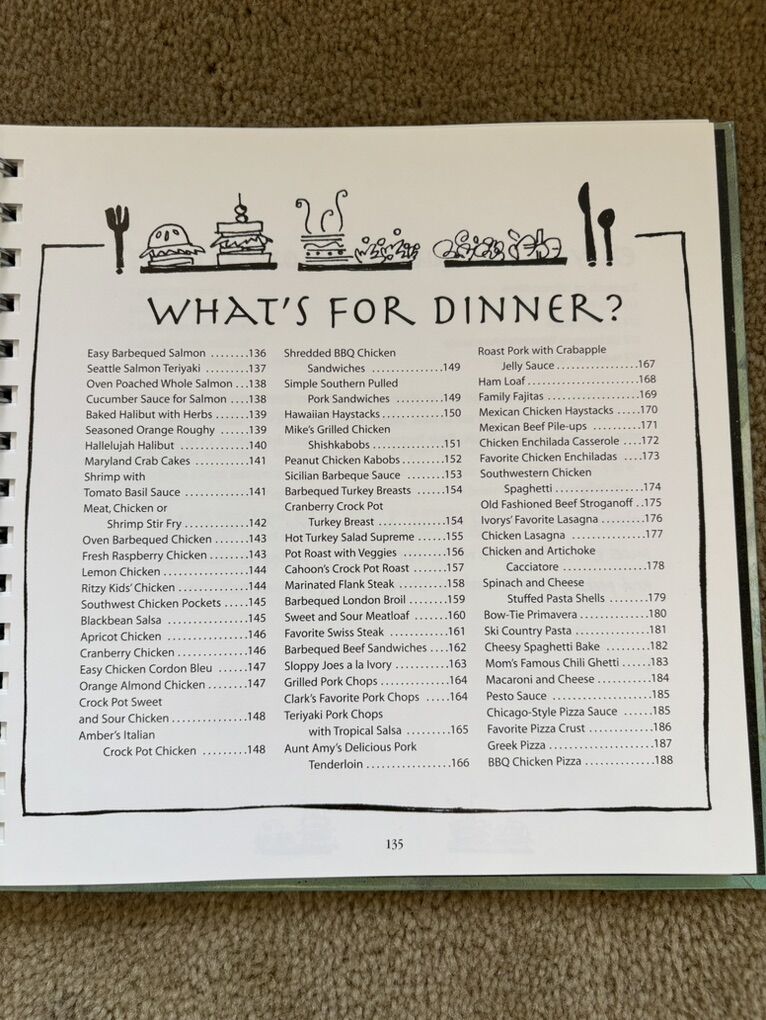 WHAT'S FOR DINNER?
Easy Barbequed Salmon ........136
Seattle Salmon Teriyaki ........137
Oven Poached Whole Salmon ...138
Cucumber Sauce for Salmon ...138
Baked Halibut with Herbs .......139
Seasoned Orange Roughy ......139
Hallelujah Halibut .............140
Maryland Crab Cakes ..........141
Shrimp with
Tomato Basil Sauce ............141
Meat, Chicken or
Shrimp Stir Fry ............142
Oven Barbequed Chicken .......143
Fresh Raspberry Chicken ........143
Lemon Chicken ...............144
Ritzy Kids' Chicken ............144
Southwest Chicken Pockets .....145
Blackbean Salsa ...............145
Apricot Chicken ..............146
Cranberry Chicken ............146
Easy Chicken Cordon Bleu ......147
Orange Almond Chicken ........147
Crock Pot Sweet
and Sour Chicken .............148
Amber's Italian
Crock Pot Chicken .........148
Shredded BBQ Chicken
Sandwiches ..............149
Simple Southern Pulled
Pork Sandwiches ..........149
Hawaiian Haystacks ...........150
Mike's Grilled Chicken
Shishkabobs .............151
Peanut Chicken Kabobs ........152
Sicilian Barbeque Sauce ........153
Barbequed Turkey Breasts ......154
Cranberry Crock Pot
Turkey Breast .............154
Hot Turkey Salad Supreme ......155
Pot Roast with Veggies .........156
Cahoon's Crock Pot Roast .......157
Marinated Flank Steak .........158
Barbequed London Broil ........159
Sweet and Sour Meatloaf .......160
Favorite Swiss Steak ...........161
Barbequed Beef Sandwiches ....162
Sloppy Joes a la Ivory ..........163
Grilled Pork Chops ............164
Clark's Favorite Pork Chops .....164
Teriyaki Pork Chops
with Tropical Salsa .........165
Aunt Amy's Delicious Pork
Tenderloin ................166
Roast Pork with Crabapple
Jelly Sauce ...............167
Ham Loaf ....................168
Family Fajitas .................169
Mexican Chicken Haystacks .....170
Mexican Beef Pile-ups .........171
Chicken Enchilada Casserole ....172
Favorite Chicken Enchiladas ....173
Southwestern Chicken
Spaghetti ................174
Old Fashioned Beef Stroganoff ..175
Ivorys' Favorite Lasagna ........176
Chicken Lasagna ..............177
Chicken and Artichoke
Cacciatore ................178
Spinach and Cheese
Stuffed Pasta Shells ........179
Bow-Tie Primavera ............180
Ski Country Pasta .............181
Cheesy Spaghetti Bake .........182
Mom's Famous Chili Ghetti ......183
Macaroni and Cheese ..........184
Pesto Sauce ..................185
Chicago-Style Pizza Sauce ......185
Favorite Pizza Crust ............186
Greek Pizza ...................187
BBQ Chicken Pizza .............188
135